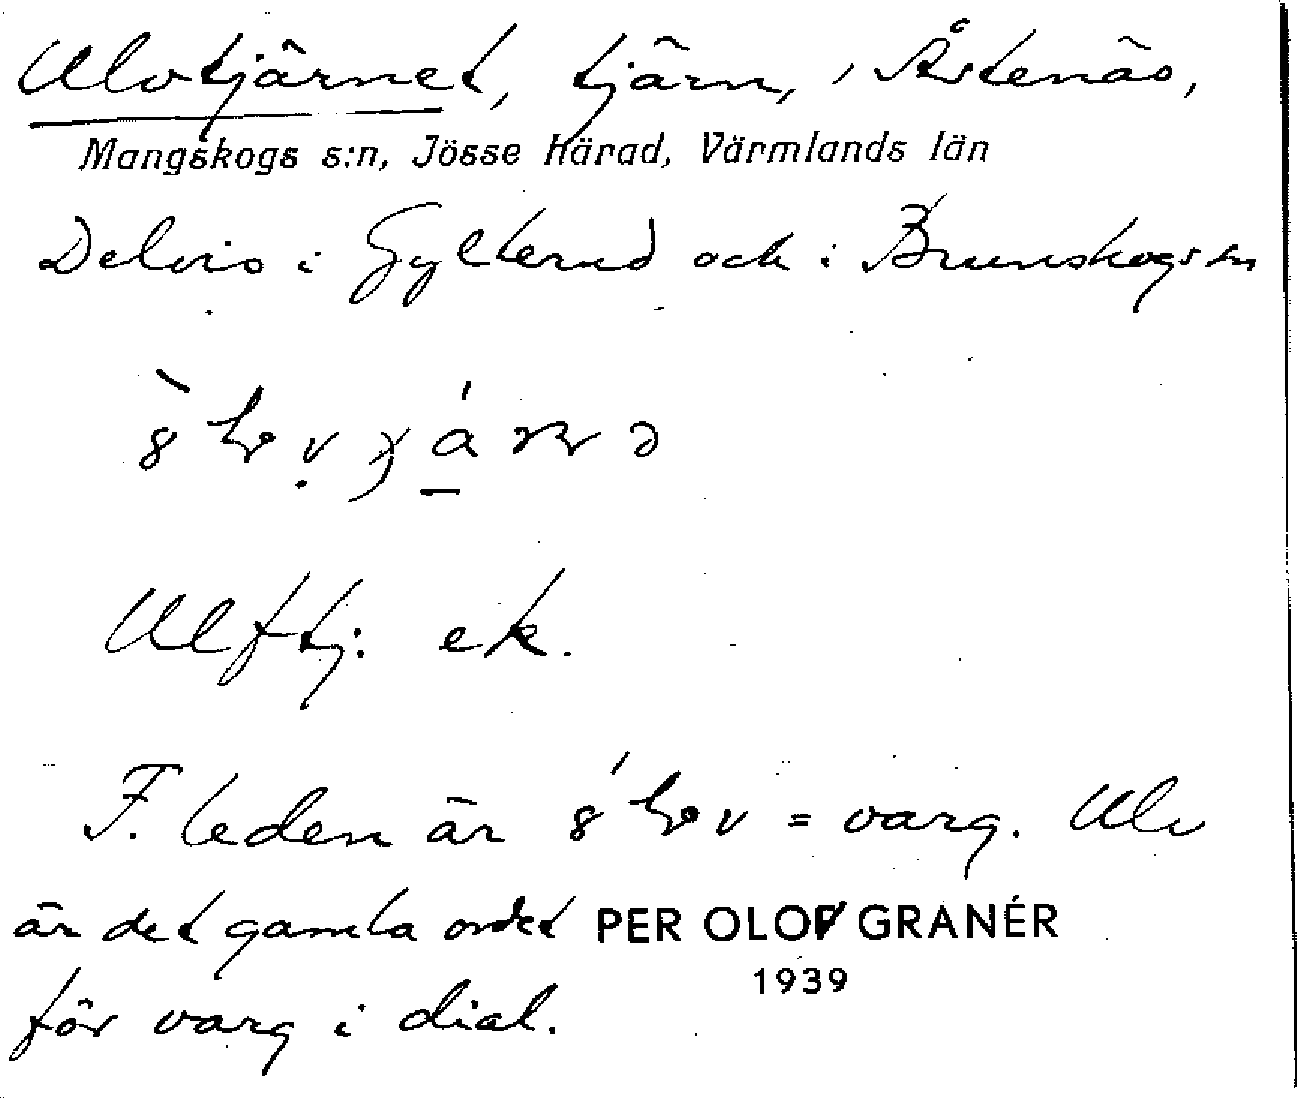 Ulvtjärnet, tjärn, i Åstenäs,
Mangskogs s:n, Jösse Härad, Värmlands län
Delvis i Gylterud och i Brunskogs sn
Ulftj: ek.
F. leden är = varg. Ulv
är det gamla ordet PER OLOF GRANÉR
1939
för varg i dial.